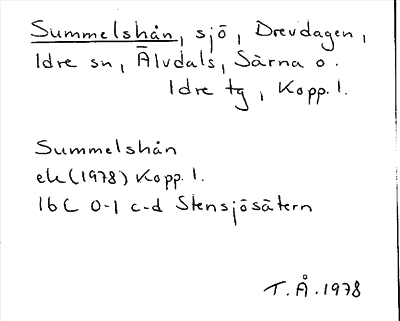 Summelshån, sjö, Drevdagen,
Idre sn, Älvdals, Särna o.
Idre tg, Kopp. l.
Summelshån
ek (1978) Kopp. l.
16 C 0-1 c-d Stensjösätern
T. Å. 1978